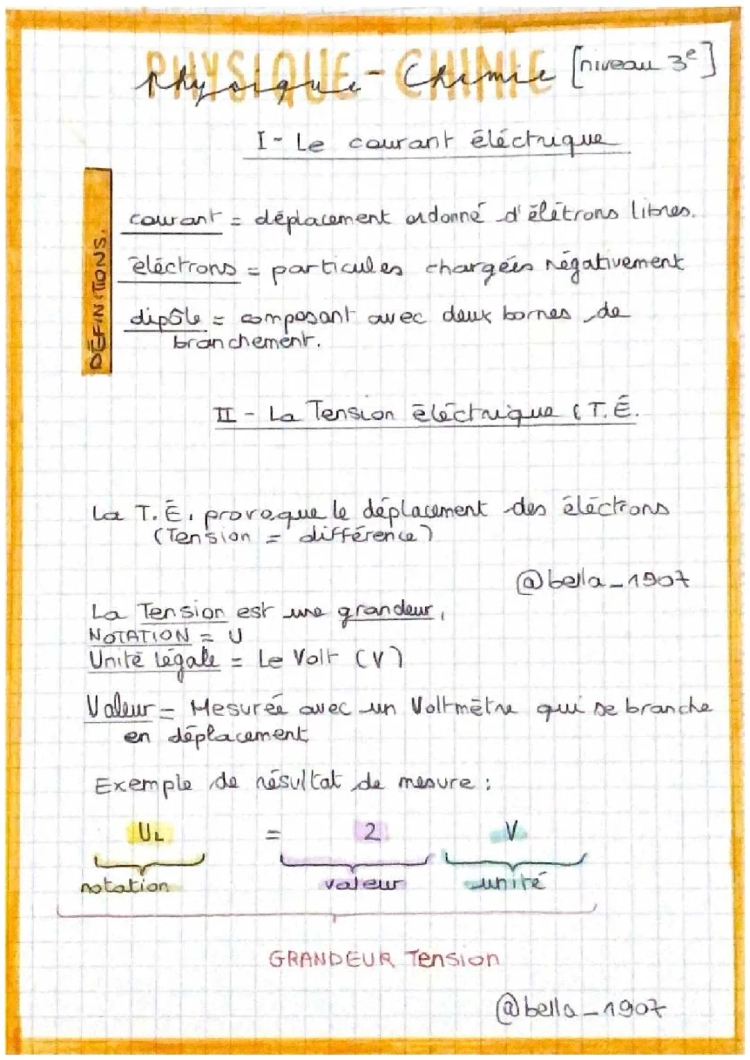 PHYSIQUE-CHIMIE
Physique-Chimie [niveau 3e]
I- Le courant éléctrique
DÉFINITIONS.
courant = déplacement ordonné d'élétrons libres.
éléctrons = particules chargées négativement
dipôle = composant avec deux bornes de
branchement.
II - La Tension éléctrique (T.É.
La T.É. provoque le déplacement des éléctrons
(Tension = différence)
@bella_1907
La Tension est une grandeur,
NOTATION = U
Unité légale = Le Volt (V)
Valeur = Mesurée avec un Voltmètre qui se branche
en déplacement
Exemple de résultat de mesure :
UL = 2 V
notation valeur unité
GRANDEUR Tension
@bella_1907